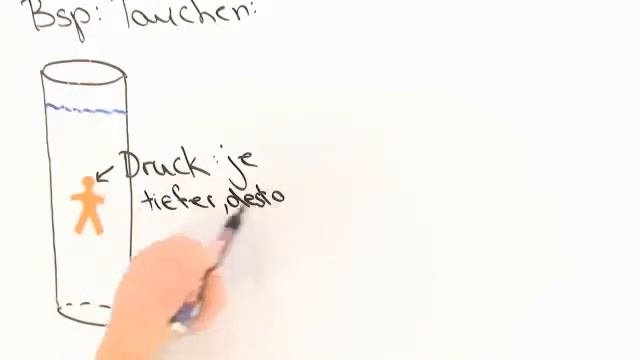 Bsp: Tauchen:
Druck: je
tiefer, desto